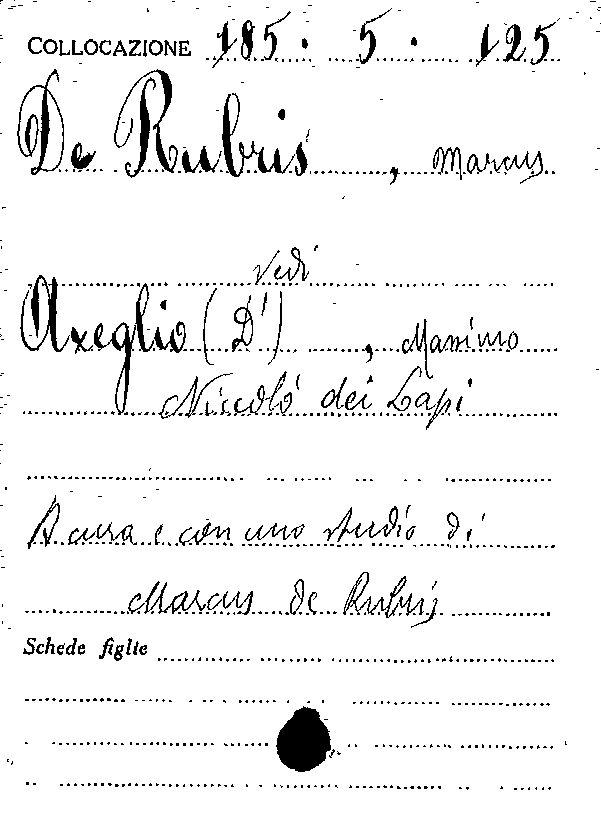 COLLOCAZIONE 185. 5. 125
De Rubris, Marcus
vedi
Azeglio (D'), Massimo
Niccolò dei Lapi
A cura e con uno studio di
Marcus de Rubris
Schede figlie